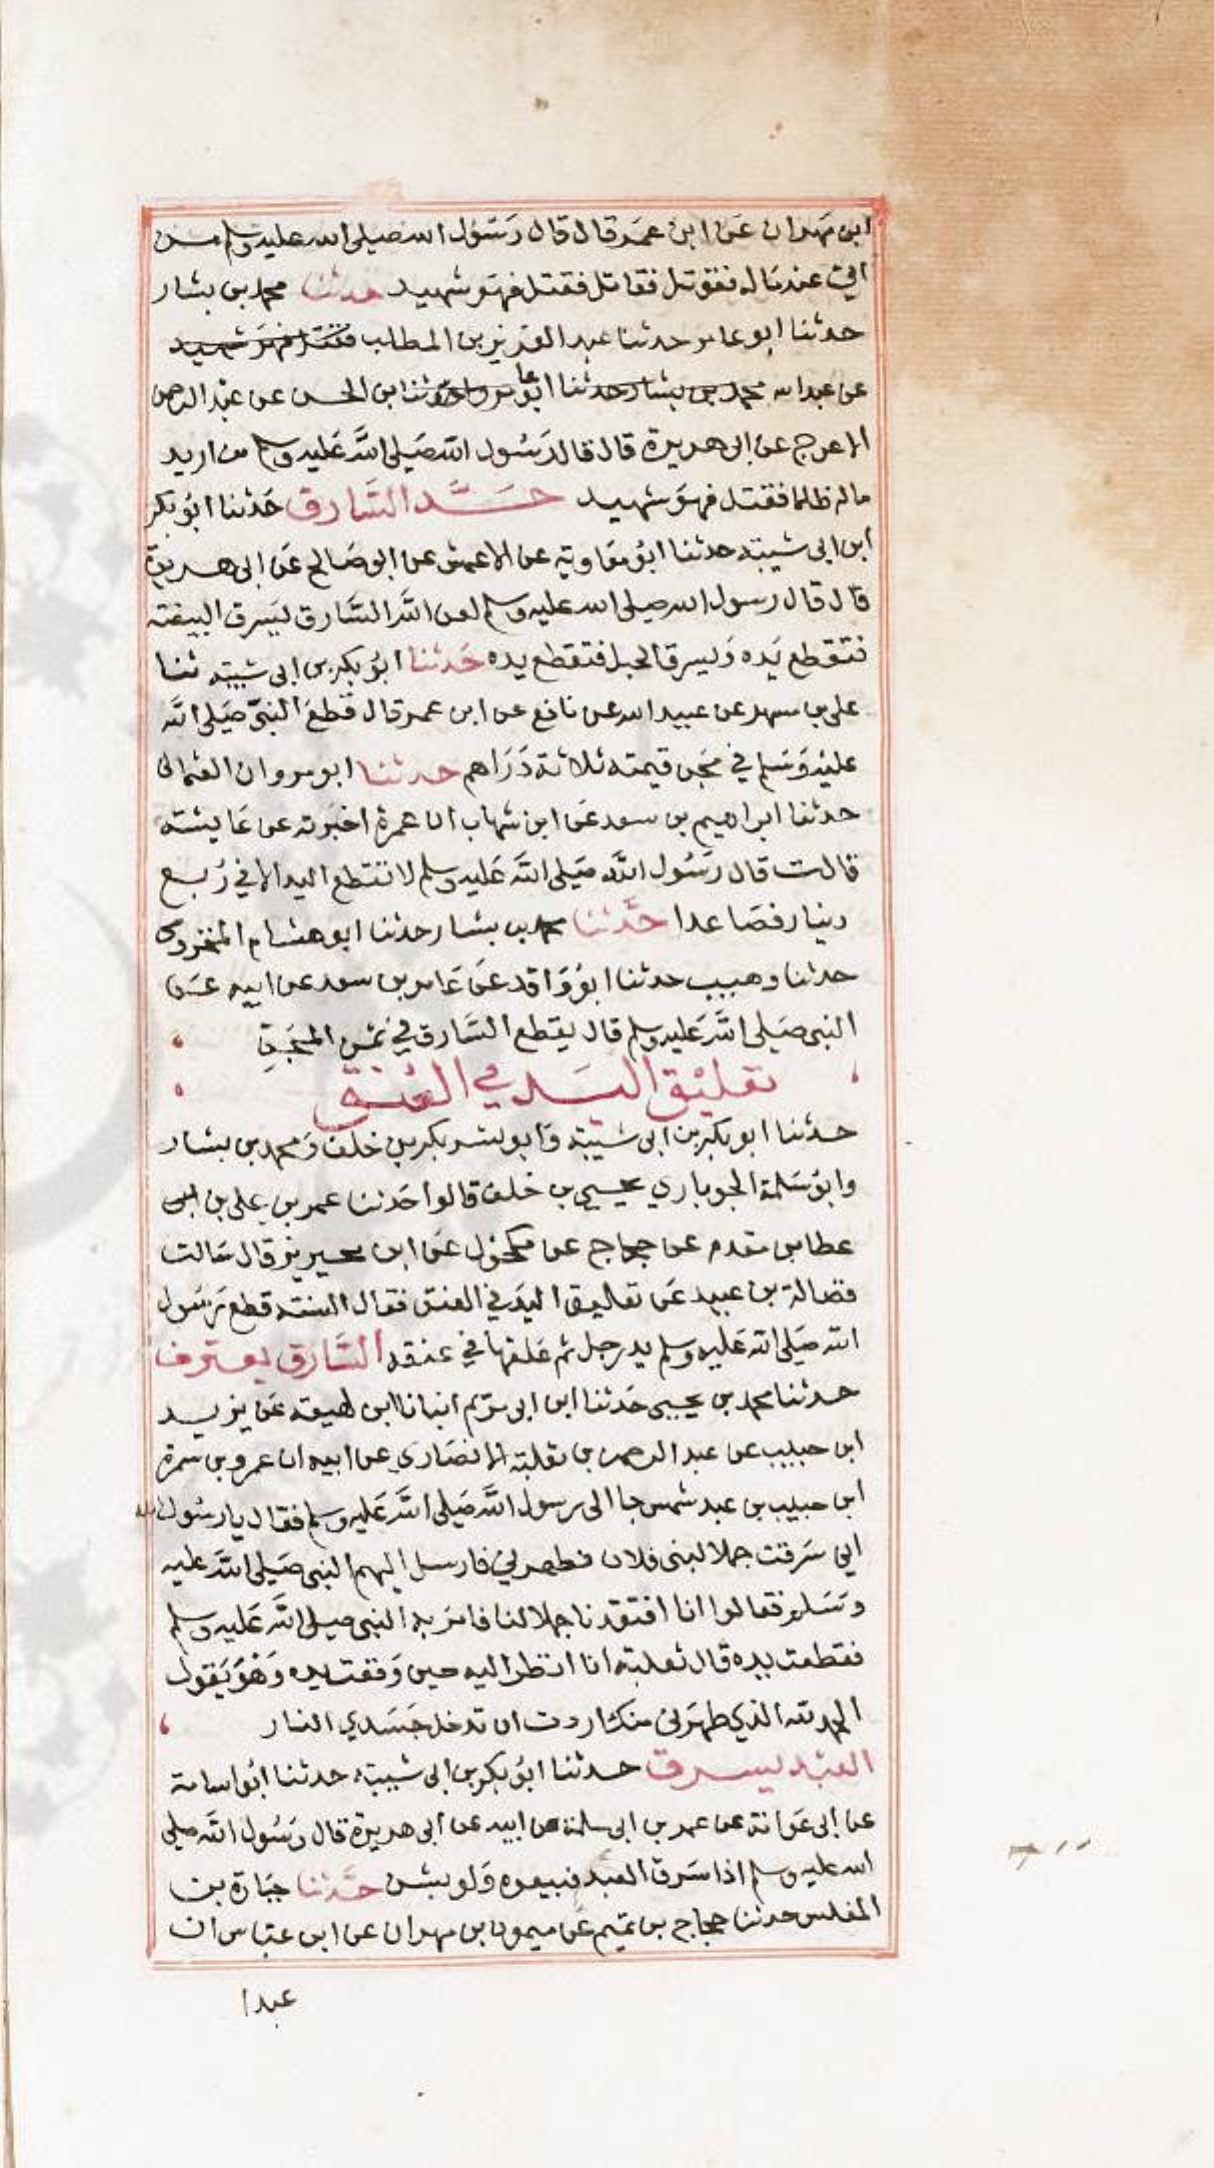 ابن مهران عن ابن عمر قال قال رسول الله صلى الله عليه وسلم من
اتى عند ماله فقوتل فقاتل فقتل فهو شهيد حدثنا محمد بن بشار
حدثنا ابو عامر حدثنا عبد العزيز بن المطلب فقتل فهو شهيد
عن عبد الله محمد بن بشار حدثنا ابو عامر حدثنا ابن الحسن عن عبد الرحمن
الاعرج عن ابى هريرة قال قال رسول الله صلى الله عليه وسلم من اريد
ماله ظلما فقتل فهو شهيد حد السارق حدثنا ابو بكر
ابن ابى شيبة حدثنا ابو معاوية عن الاعمش عن ابى صالح عن ابى هريرة
قال قال رسول الله صلى الله عليه وسلم لعن الله السارق يسرق البيضة
فتقطع يده ويسرق الحبل فتقطع يده حدثنا ابو بكر بن ابى شيبة ثنا
على بن مسهر عن عبيد الله عن نافع عن ابن عمر قال قطع النبي صلى الله
عليه وسلم في مجن قيمته ثلاثة دراهم حدثنا ابو مروان العثمانى
حدثنا ابراهيم بن سعد عن ابن شهاب ان عمرة اخبرته عن عايشة
قالت قال رسول الله صلى الله عليه وسلم لا تقطع اليد الا في ربع
دينار فصاعدا حدثنا محمد بن بشار حدثنا ابو هشام المخزومى
حدثنا وهيب حدثنا ابو واقد عن عامر بن سعد عن ابيه عن
النبي صلى الله عليه وسلم قال يقطع السارق في ثمن المجن
تعليق اليد في العنق
حدثنا ابو بكر بن ابى شيبة وابو بشر بكر بن خلف ومحمد بن بشار
وابو سلمة الجوباري يحيى بن خلف قالوا حدثنا عمر بن علي بن
عطا بن مقدم عن حجاج عن مكحول عن ابن محيريز قال سالت
فضالة بن عبيد عن تعاليق اليد في العنق فقال السنة قطع رسول
الله صلى الله عليه وسلم يد رجل ثم علقها في عنقه السارق يعترف
حدثنا محمد بن يحيى حدثنا ابن ابى مريم انبانا ابن لهيعة عن يزيد
ابن حبيب عن عبد الرحمن بن ثعلبة الانصاري عن ابيه ان عمرو بن سمرة
ابن حبيب بن عبد شمس جا الى رسول الله صلى الله عليه وسلم فقال يا رسول الله
اني سرقت جملا لبنى فلان فطهرني فارسل اليهم النبي صلى الله عليه
وسلم فقالوا انا افتقدنا جملا لنا فامر به النبي صلى الله عليه وسلم
فقطعت يده قال ثعلبة انا انظر اليه حين وقعت يده وهو يقول
الحمد لله الذي طهرني منك اردت ان تدخل جسدي النار
العبد يسرق حدثنا ابو بكر بن ابى شيبة حدثنا ابو اسامة
عن ابى عوانة عن عمر بن ابى سلمة عن ابيه عن ابى هريرة قال رسول الله صلى
الله عليه وسلم اذا سرق العبد فبيعوه ولو بنش حدثنا جبارة بن
المغلس حدثنا حجاج بن تميم عن ميمون بن مهران عن ابن عباس ان
عبدا